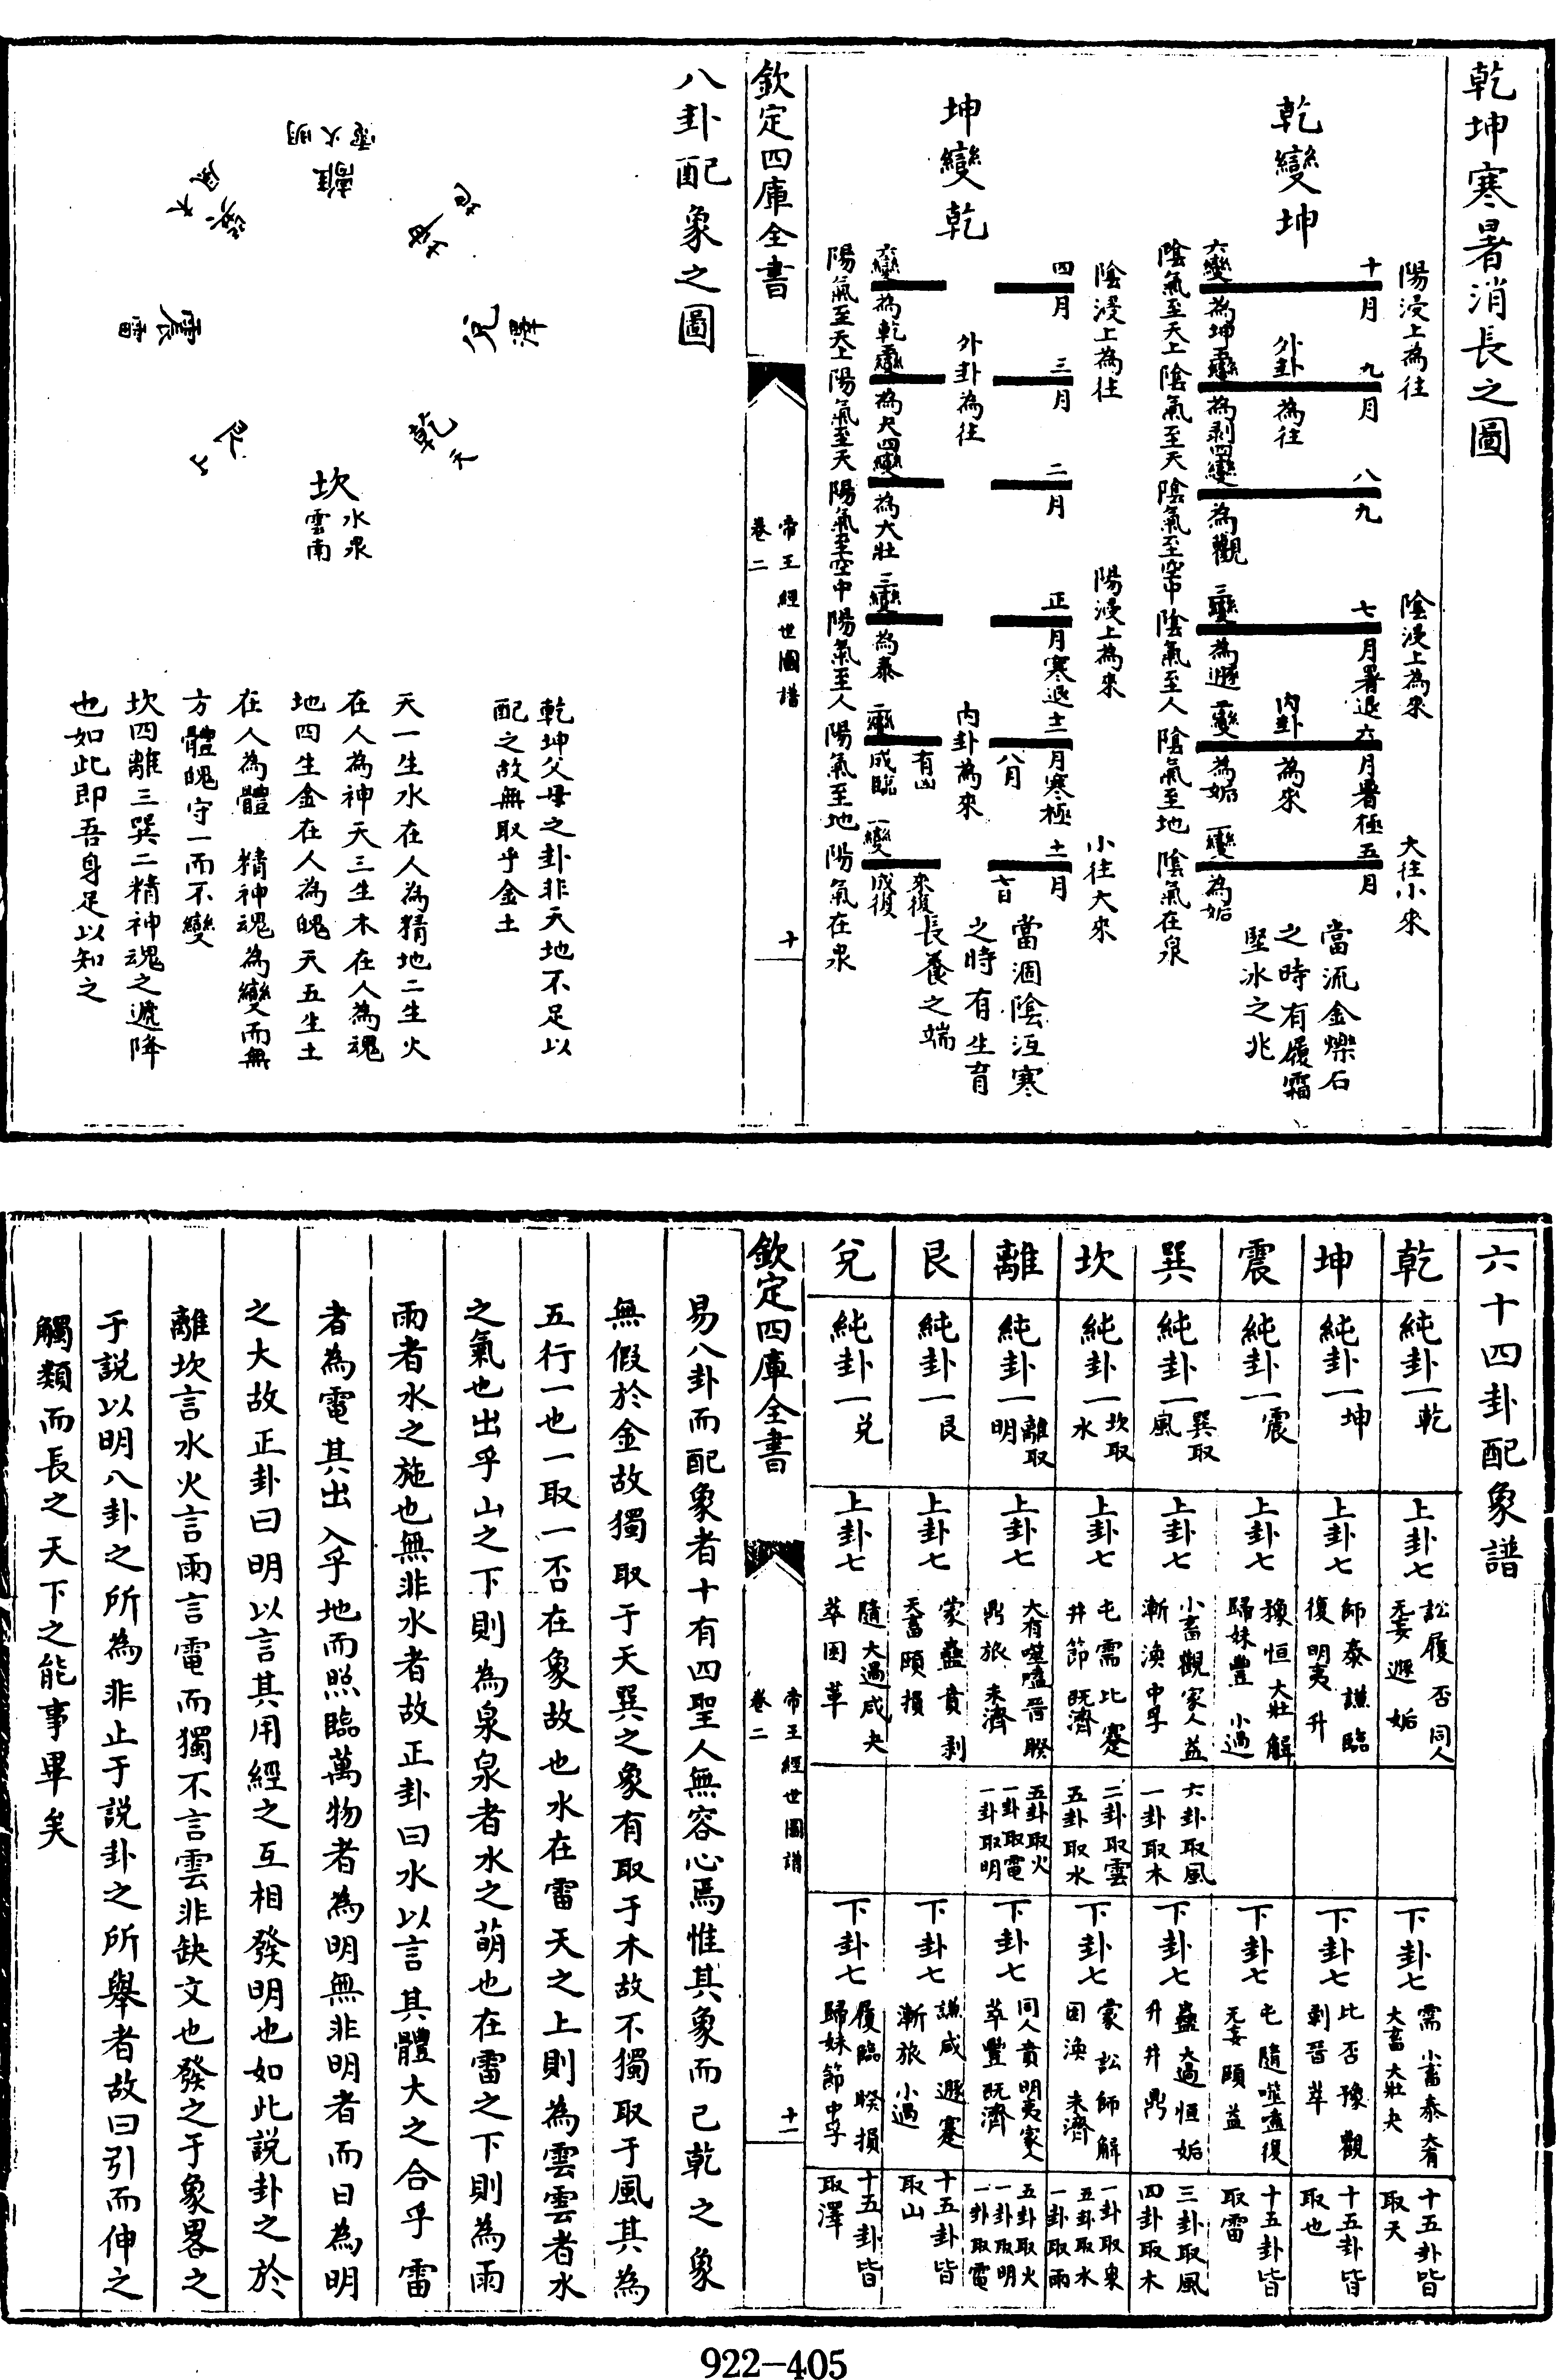 乾坤寒暑消長之圖
乾變坤
陽浸上為往
陰浸上為來
大往小來
十月
九月
八九
七月暑退
六月暑極
五月
外卦為往
內卦為來
六變為坤
五變為剥
四變為觀
三變為遯
二變為姤
一變為姤
陰氣至天上
陰氣至天
陰氣至空中
陰氣至人
陰氣至地
陰氣在泉
當流金爍石
之時有履霜
堅冰之兆
坤變乾
陰浸上為往
陽浸上為來
小往大來
四月
三月
二月
正月寒退
十二月寒極
十一月
外卦為往
內卦為來
八月
有凶
七日
來復
六變為乾
五變為夬
四變為大壯
三變為泰
二變成臨
一變成復
陽氣至天上
陽氣至天
陽氣至空中
陽氣至人
陽氣至地
陽氣在泉
當涸陰沍寒
之時有生育
長養之端
欽定四庫全書
帝王經世圖譜
卷二
十
八卦配象之圖
離
電火明
坤
地
兌
澤
乾
天
坎
水泉
雲雨
艮
山
震
雷
巽
木
風
乾坤父母之卦非天地不足以
配之故無取乎金土
天一生水在人為精地二生火
在人為神天三生木在人為魂
地四生金在人為魄天五生土
在人為體　精神魂為變而無
方體魄守一而不變
坎四離三巽二精神魂之遞降
也如此即吾身足以知之
六十四卦配象譜
乾
純卦一
乾
上卦七
訟履否同人
无妄遯姤
下卦七
需小畜泰大有
大畜大壯夬
十五卦皆
取天
坤
純卦一
坤
上卦七
師泰謙臨
復明夷升
下卦七
比否豫觀
剥晉萃
十五卦皆
取也
震
純卦一
震
上卦七
豫恒大壯解
歸妹豐小過
下卦七
屯隨噬嗑復
无妄頤益
十五卦皆
取雷
巽
純卦一
巽取
風
上卦七
小畜觀家人益
漸渙中孚
六卦取風
一卦取木
下卦七
蠱大過恒姤
升井鼎
三卦取風
四卦取木
坎
純卦一
坎取
水
上卦七
屯需比蹇
井節既濟
二卦取雲
五卦取水
下卦七
蒙訟師解
困渙未濟
一卦取泉
五卦取水
一卦取雨
離
純卦一
離取
明
上卦七
大有噬嗑晉睽
鼎旅未濟
五卦取火
一卦取電
一卦取明
下卦七
同人賁明夷家人
革豐既濟
五卦取火
一卦取明
一卦取電
艮
純卦一
艮
上卦七
蒙蠱賁剥
大畜頤損
下卦七
謙咸遯蹇
漸旅小過
十五卦皆
取山
兌
純卦一
兌
上卦七
隨大過咸夬
萃困革
下卦七
履臨睽損
歸妹節中孚
十五卦皆
取澤
欽定四庫全書
帝王經世圖譜
卷二
十一
易八卦而配象者十有四聖人無容心焉惟其象而已乾之象
無假於金故獨取于天巽之象有取于木故不獨取于風其為
五行一也一取一否在象故也水在雷天之上則為雲雲者水
之氣也出乎山之下則為泉泉者水之萌也在雷之下則為雨
雨者水之施也無非水者故正卦曰水以言其體大之合乎雷
者為電其出入乎地而照臨萬物者為明無非明者而日為明
之大故正卦曰明以言其用經之互相發明也如此說卦之於
離坎言水火言雨言電而獨不言雲非缺文也發之于象畧之
于説以明八卦之所為非止于説卦之所舉者故曰引而伸之
觸類而長之天下之能事畢矣
922-405